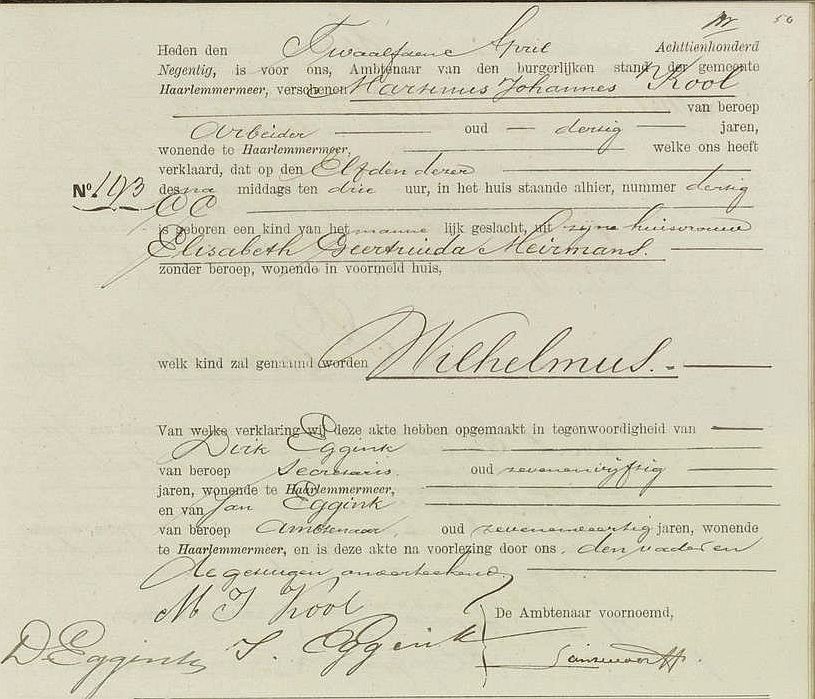 50
Heden den Twaalfden April Achttienhonderd
Negentig, is voor ons, Ambtenaar van den burgerlijken stand der gemeente
Haarlemmermeer, verschenen Marinus Johannes Kool
van beroep
Arbeider oud dertig jaren,
wonende te Haarlemmermeer, welke ons heeft
verklaard, dat op den Elfden dezer
No. 193 des na middags ten drie uur, in het huis staande alhier, nummer dertig
CC
is geboren een kind van het manne lijk geslacht, uit zijne huisvrouw
Elisabeth Geertruida Meirmans.
zonder beroep, wonende in voormeld huis,
welk kind zal genaamd worden Wilhelmus.
Van welke verklaring wij deze akte hebben opgemaakt in tegenwoordigheid van
Dirk Eggink
van beroep Secretaris. oud zevenenvijftig
jaren, wonende te Haarlemmermeer,
en van Jan Eggink
van beroep Ambtenaar, oud zevenenveertig jaren, wonende
te Haarlemmermeer, en is deze akte na voorlezing door ons, den vader en
de getuigen onderteekend
M J Kool
De Ambtenaar voornoemd,
D Eggink J. Eggink